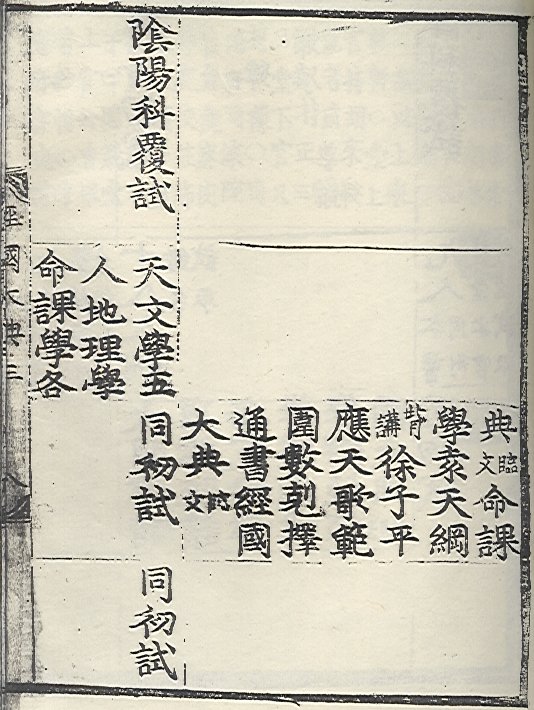 典臨文命課
學袁天綱
背講徐子平
應天歌範
圍數剋擇
通書經國
大典臨文
陰陽科覆試
天文學五
同初試
同初試
人地理學
命課學各
經國大典三